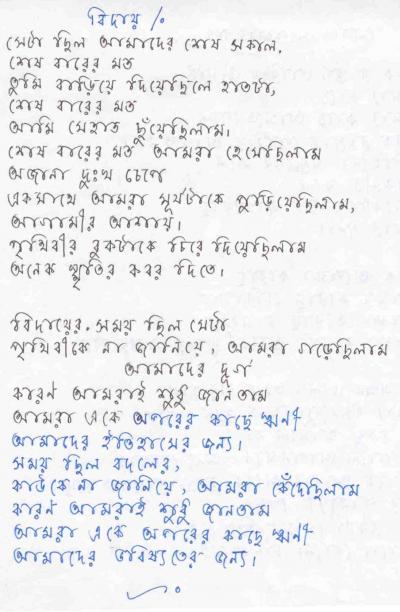 বিদায় /০
সেটা ছিল আমাদের শেষ সকাল,
শেষ বারের মত
তুমি বাড়িয়ে দিয়েছিলে হাতটা,
শেষ বারের মত
আমি সেহাত ছুঁয়েছিলাম।
শেষ বারের মত আমরা হেসেছিলাম
অজানা দুঃখ চেপে
একসাথে আমরা সূর্যটাকে পুড়িয়েছিলাম,
আগামীর আশায়।
পৃথিবীর বুকটাকে চিরে দিয়েছিলাম
অনেক স্মৃতির কবর দিতে।
বিদায়ের সময় ছিল সেটা
পৃথিবীকে না জানিয়ে, আমরা গড়েছিলাম
আমাদের দুর্গ
কারণ আমরাই শুধু জানতাম
আমরা একে অপরের কাছে ঋণী
আমাদের ইতিহাসের জন্য।
সময় ছিল বদলের,
কাউকে না জানিয়ে, আমরা কেঁদেছিলাম
কারণ আমরাই শুধু জানতাম
আমরা একে অপরের কাছে ঋণী
আমাদের ভবিষ্যতের জন্য।